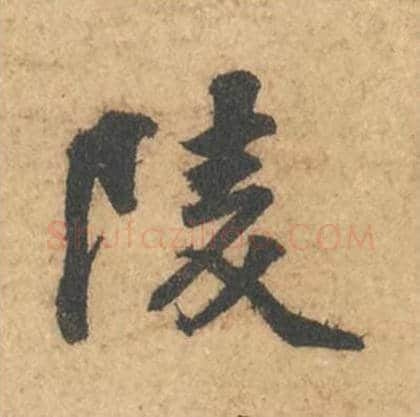 陵
shufazidian.COM